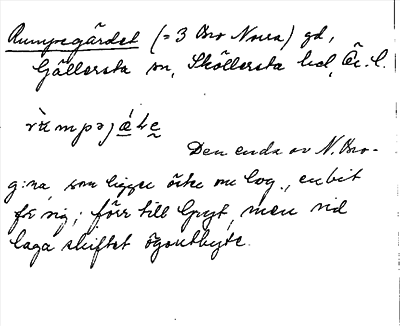 Rumpegärdet (= 3 Bro Norra) gd,
Gällersta sn, Sköllersta hd, Ör. l.
rùmpəjä́ɽe̲
Den enda av N. Bro-
g:na, som ligger öster om log., en bit
för sig; förr till Gryt, men vid
laga skiftet ägoutbyte.